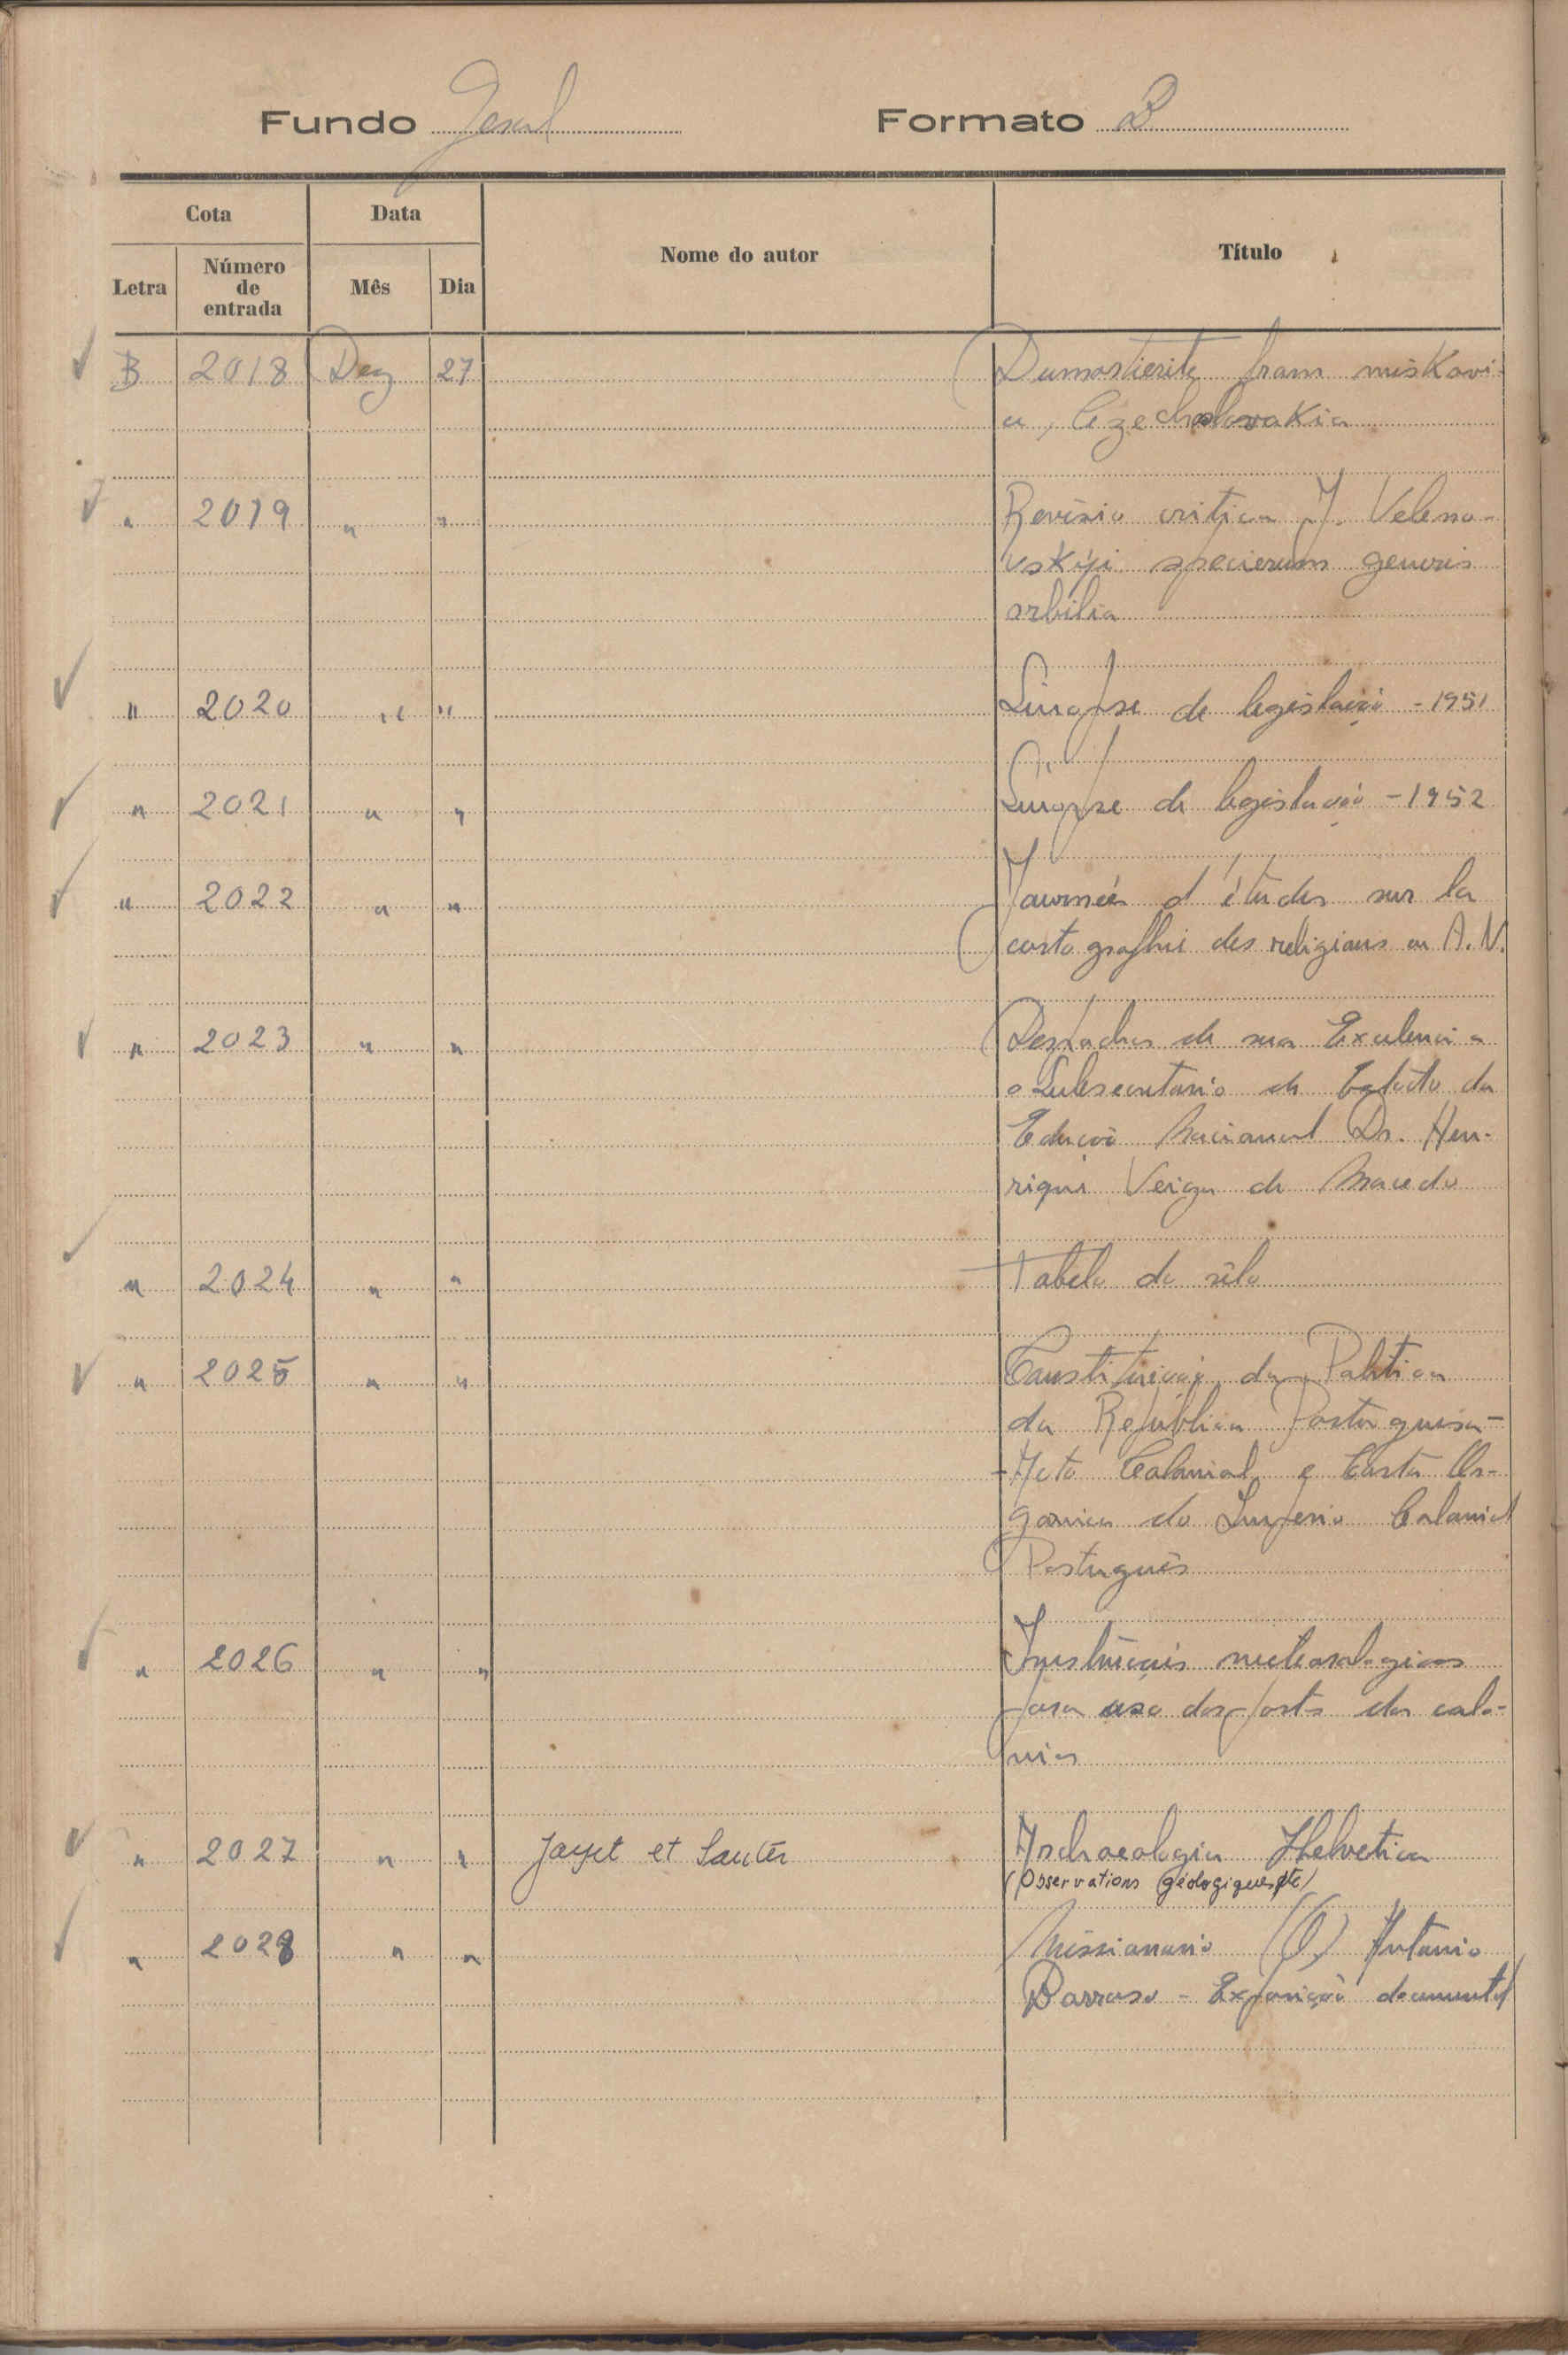 Fundo Geral Formato B
Cota Data Nome do autor Título
Letra Número de entrada Mês Dia
B 2018 Dez 27 Dumortierite from miskovi-
ce, Czechoslovakia
" 2019 " " Revisio critica J. Veleno-
vskýi specierum generis
orbilia
" 2020 " " Sinopse de legislação - 1951
" 2021 " " Sinopse de legislação - 1952
" 2022 " " Journées d'études sur la
cartographie des religions en A.N.
" 2023 " " Despachos de sua Excelencia
o Subsecretario de Estado da
Educação Nacional Dr. Hen-
rique Veiga de Macedo
" 2024 " " Tabela do sêlo
" 2025 " " Constituição da Politica
da República Portuguesa -
- Acto Colonial e Carta Or-
ganica do Imperio Colonial
Português
" 2026 " " Instruções meteorologicas
para uso dos posts das colo-
nias
" 2027 " " Jayet et Sauter Archaeologia Helvetica
(Osservations géologiques etc)
" 2028 " " Missionario (O) Antonio
Barroso - Exposição documental